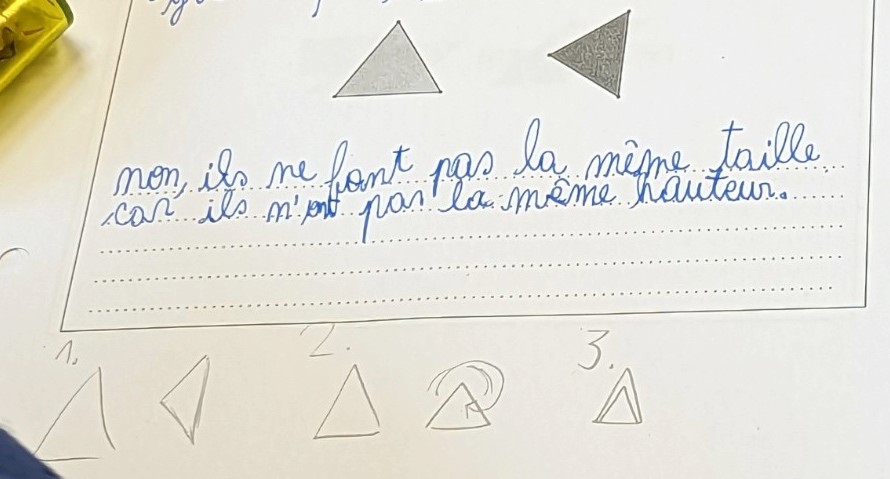 non, ils ne font pas la même taille
car ils n'ont pas la même hauteur.
1.
2.
3.